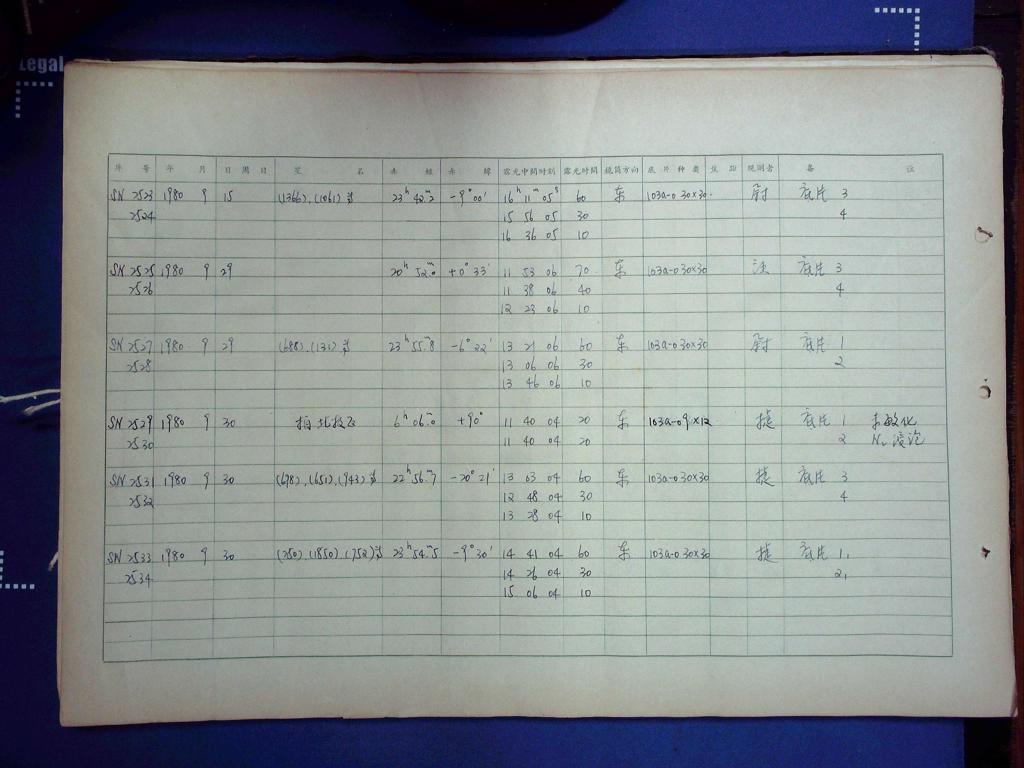 Legal
序号 年 月 日 周日 星名 赤经 赤纬 露光中间时刻 露光时间 镜筒方向 底片种类 焦距 观测者 备註
SN 2523 1980 9 15 (1366), (1061) 等 23ʰ 42.ᵐ2 -9° 00′ 16ʰ 11ᵐ 05ˢ 60 东 103a-0 30×30 尉 底片 3
2524 15 56 05 30 4
16 36 05 10
SN 2525 1980 9 29 20ʰ 52.ᵐ0 +0° 33′ 11 53 06 70 东 103a-0 30×30 底片 3
2526 11 38 06 40 4
12 23 06 10
SN 2527 1980 9 29 (688), (131) 等 23ʰ 55.ᵐ8 -6° 22′ 13 21 06 60 东 103a-0 30×30 尉 底片 1
2528 13 06 06 30 2
13 46 06 10
SN 2529 1980 9 30 6ʰ 06.ᵐ0 +90° 11 40 04 20 东 103a-0 9×12 捷 底片 1 未敏化
2530 11 40 04 20 2 N₂ 浸泡
SN 2531 1980 9 30 (698), (651), (943) 等 22ʰ 56.ᵐ7 -20° 21′ 13 03 04 60 东 103a-0 30×30 捷 底片 3
2532 12 48 04 30 4
13 28 04 10
SN 2533 1980 9 30 (250), (1850), (752) 等 23ʰ 54.ᵐ5 -9° 30′ 14 41 04 60 东 103a-0 30×30 捷 底片 1,
2534 14 26 04 30 2,
15 06 04 10